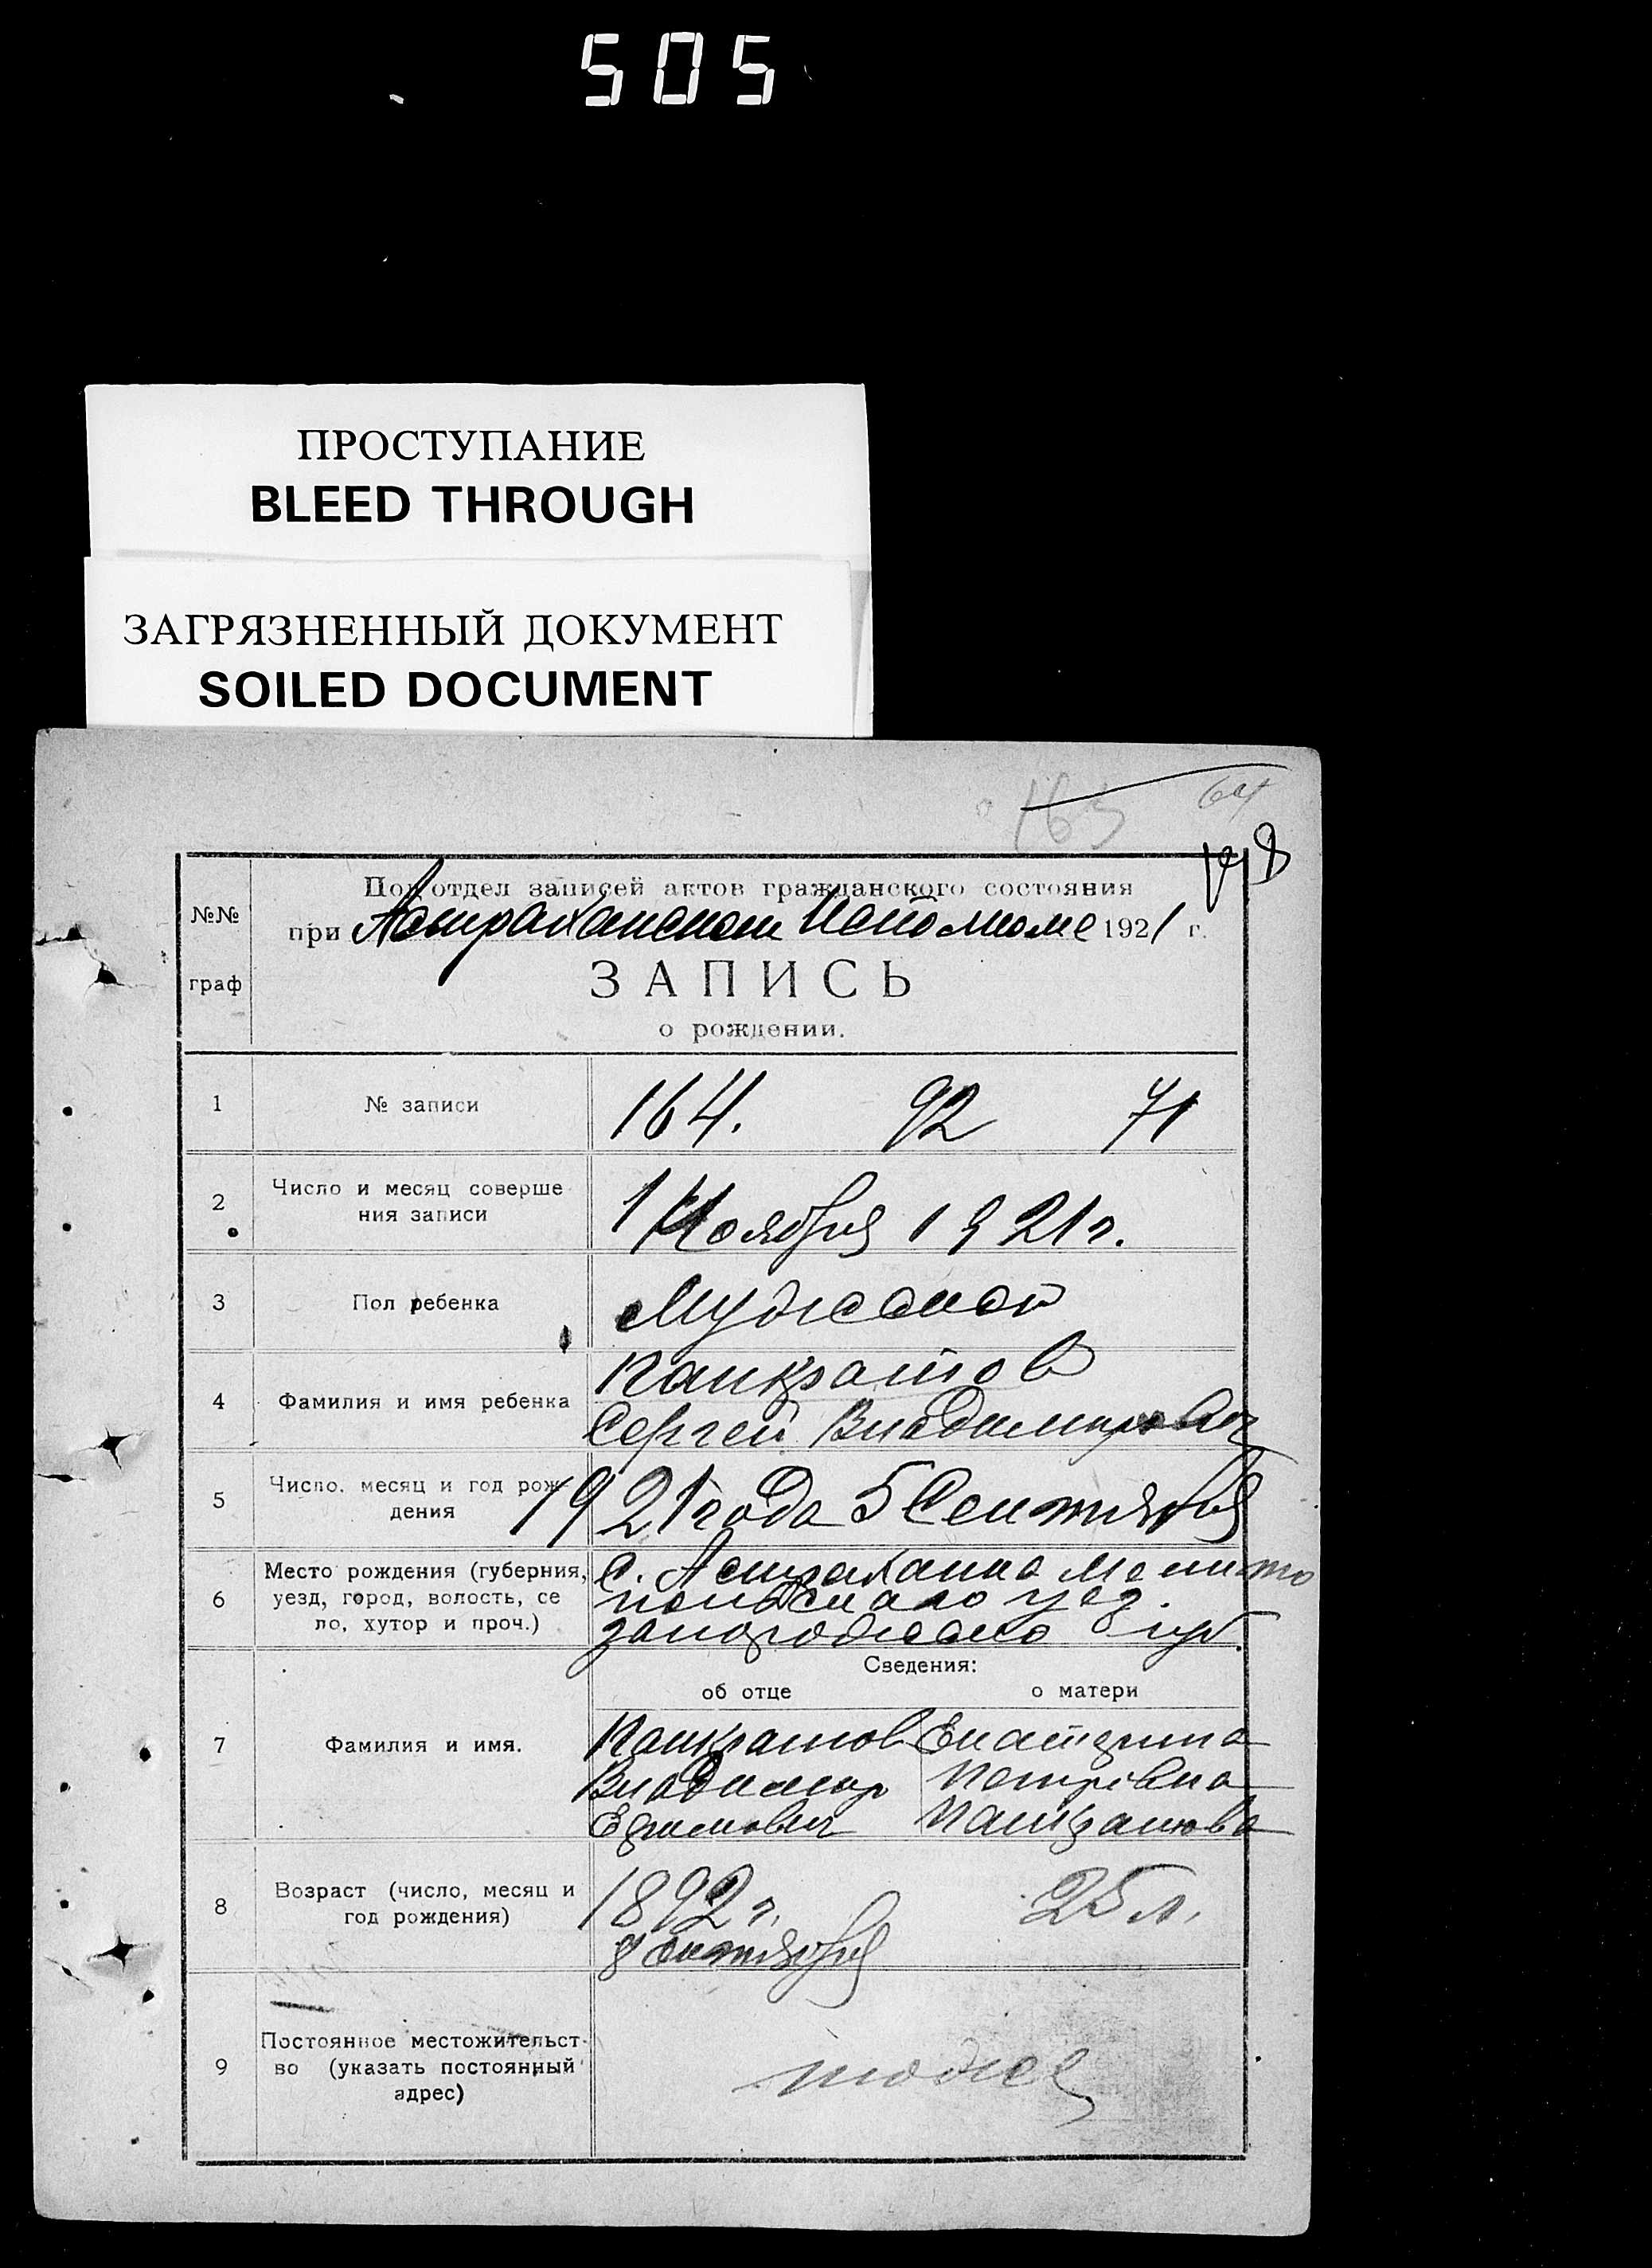 505
ПРОСТУПАНИЕ
BLEED THROUGH
ЗАГРЯЗНЕННЫЙ ДОКУМЕНТ
SOILED DOCUMENT
163 64
№№
граф
Подотдел записей актов гражданского состояния
при Астраханском Исполкоме 1921 г.
ЗАПИСЬ
о рождении.
1 № записи 164. 92 71
2 Число и месяц соверше
ния записи
1 Ноября 1921 г.
3 Пол ребенка Мужской
4 Фамилия и имя ребенка
Панкратов
Сергей Владимирович
5 Число, месяц и год рож
дения
1921 года 5 Сентября
6 Место рождения (губерния,
уезд, город, волость, се
ло, хутор и проч.)
с. Астраханка Мелито
польского уез.
запорожской губ.
Сведения:
об отце о матери
7 Фамилия и имя.
Панкратов Екатерина
Владимир
Панкратова
8 Возраст (число, месяц и
год рождения)
1892 г. 25 л.
9 Постоянное местожительст-
во (указать постоянный
адрес)
тоже